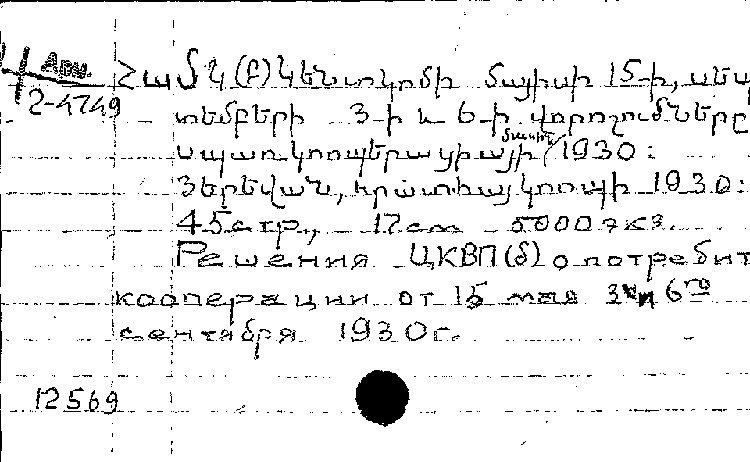 Арм.
2-4749
ՀամԿ(բ)Կ Կենտկոմի մայիսի 15-ի, սեպ
տեմբերի 3-ի և 6-ի վորոշումները
սպառկոոպերացիայի մասին 1930:
Յերեվան, հրատ. հայկոոպի 1930:
45стр., 17см 5000экз.
Решения ЦКВП(б) о потребит
кооперации от 15 мая 3 и 6го
сентября 1930г.
12569